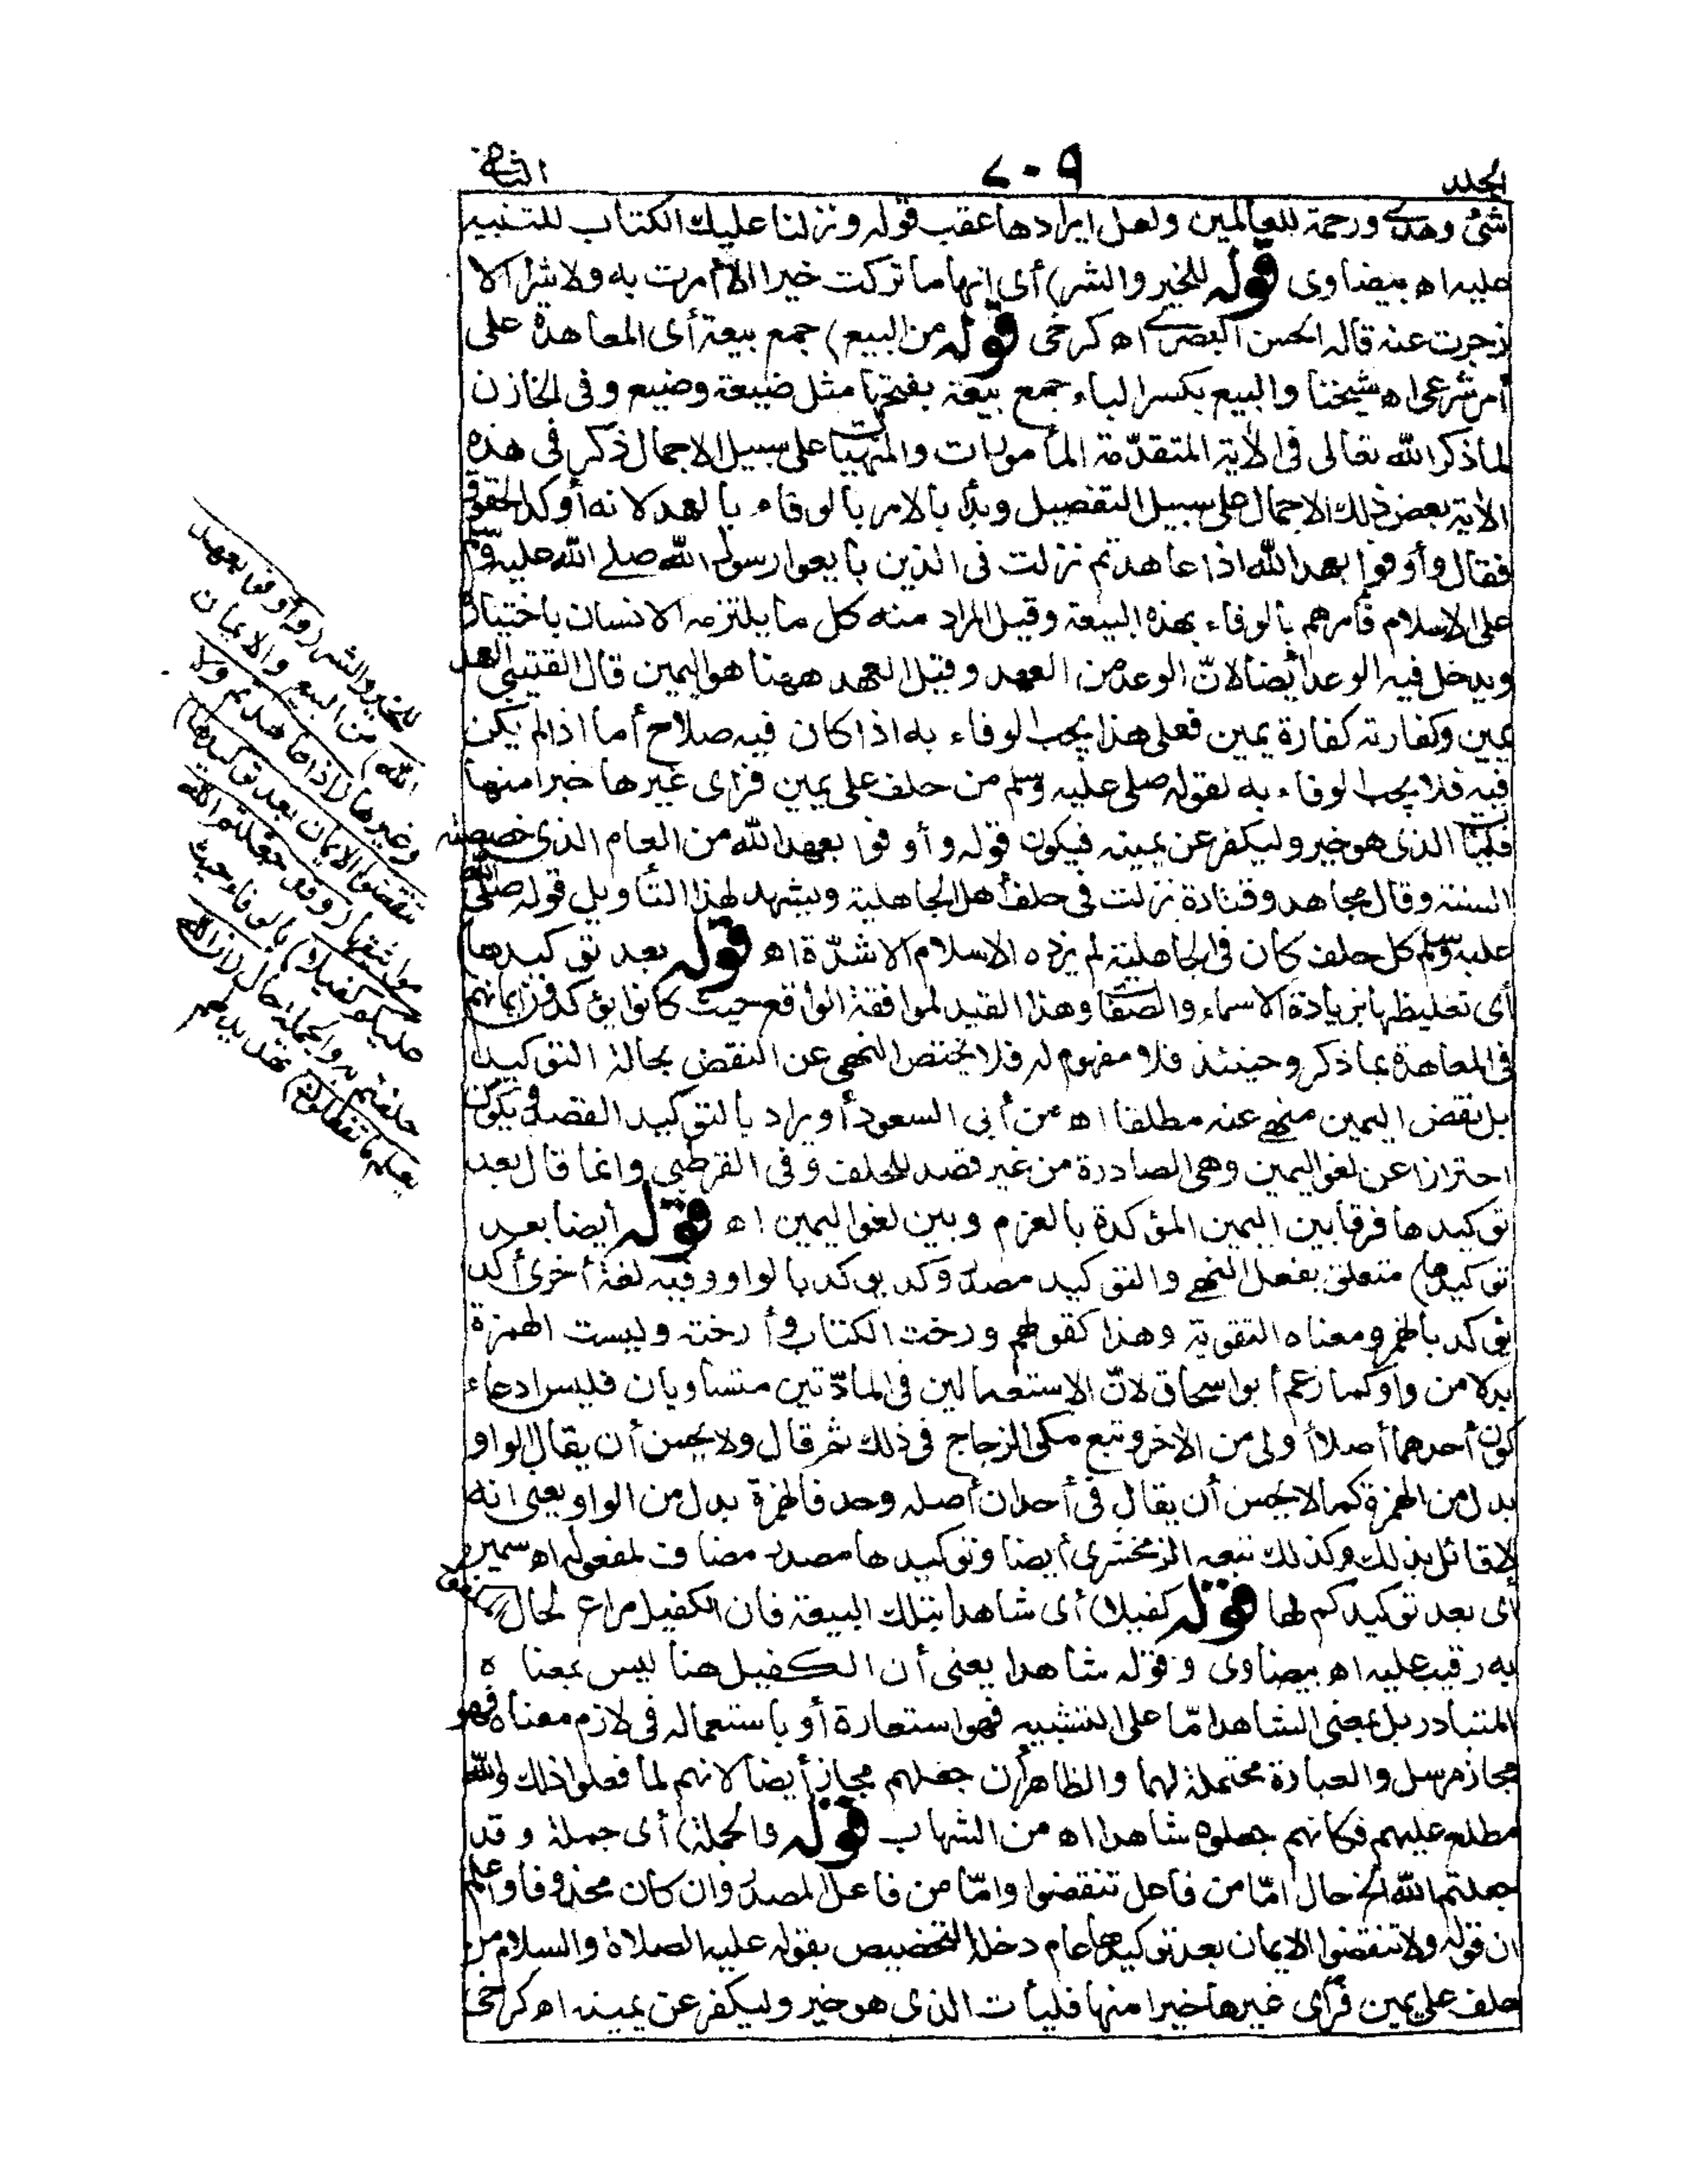 الجلد ٧٠٩ الثانى
شئ وهدى ورحمة للعالمين ولعل ايرادها عقب قوله ونزلنا عليك الكتاب للتنبيه
عليه اه بيضاوى قوله للخير والشر) أى انها ما تركت خيرا الا أمرت به ولا شرا الا
زجرت عنه قاله الحسن البصرى اه كرخى قوله من البيع) جمع بيعة أى المعاهدة على
أمر شرعى اه شيخنا والبيع بكسر الباء جمع بيعة بفتحها مثل ضيعة وضيع وفى الخازن
لما ذكر الله تعالى فى الآية المتقدّمة المأمورات والمنهيات على سبيل الاجمال ذكر فى هذه
الآية بعض ذلك الاجمال على سبيل التفصيل وبدأ بالامر بالوفاء بالعهد لانه أوكد الحقوق
فقال وأوفوا بعهد الله اذا عاهدتم نزلت فى الذين بايعوا رسول الله صلى الله عليه وسلم
على الاسلام فأمرهم بالوفاء بهذه البيعة وقيل المراد منه كل ما يلتزمه الانسان باختياره
ويدخل فيه الوعد أيضا لانّ الوعد من العهد وقيل العهد ههنا هو اليمين قال القتيبى العهد
يمين وكفارته كفارة يمين فعلى هذا يجب الوفاء به اذا كان فيه صلاح أما اذا لم يكن
فيه فلا يجب الوفاء به لقوله صلى عليه وسلم من حلف على يمين فرأى غيرها خيرا منها
فليأت الذى هو خير وليكفر عن يمينه فيكون قوله وأوفوا بعهد الله من العام الذى خصصته
السنة وقال مجاهد وقتادة نزلت فى حلف أهل الجاهلية ويشهد لهذا التأويل قوله صلى الله
عليه وسلم كل حلف كان فى الجاهلية لم يزده الاسلام الا شدّة اه قوله بعد توكيدها)
أى تغليظها بزيادة الاسماء والصفات وهذا القيد لموافقة الواقع حيث كانوا يؤكدون أيمانهم
فى المعاهدة بما ذكر وحينئذ فلا مفهوم له فلا يختص النهى عن النقض بحالة التوكيد
بل نقض اليمين منهى عنه مطلقا اه من أبى السعود أو يراد بالتوكيد القصد فيكون
احترازا عن لغو اليمين وهى الصادرة من غير قصد للحلف وفى القرطبى وانما قال بعد
توكيدها فرقا بين اليمين المؤكدة بالعزم وبين لغو اليمين اه قوله أيضا بعد
توكيدها) متعلق بفعل النهى والتوكيد مصدر وكد يوكد بالواو وفيه لغة أخرى أكد
يؤكد بالهمز ومعناه التقوية وهذا كقولهم ورخت الكتاب وأرخته وليست الهمزة
بدلا من واو كما زعم أبو اسحاق لانّ الاستعمالين فى المادّتين متساويان فليس ادعاء
كون أحدهما أصلا أولى من الآخر وتبع مكى الزجاج فى ذلك ثم قال ولا يحسن أن يقال الواو
بدل من الهمزة كما لا يحسن أن يقال فى أحد ان أصله وحد فالهمزة بدل من الواو يعنى انه
لا قائل بذلك وكذلك تبعه الزمخشرى أيضا وتوكيدها مصدر مضاف لمفعوله اه سمين
أى بعد توكيدكم لها قوله كفيلا) أى شاهدا بتلك البيعة فان الكفيل مراع لحال المكفول
به رقيب عليه اه بيضاوى وقوله شاهدا يعنى أن الكفيل هنا ليس بمعناه
المتبادر بل بمعنى الشاهد امّا على التشبيه فهو استعارة أو باستعماله فى لازم معناه فهو
مجاز مرسل والعبارة محتملة لهما والظاهر أن جعلهم مجاز أيضا لانهم لما فعلوا ذلك والله
مطلع عليهم فكأنهم جعلوه شاهدا اه من الشهاب قوله والجملة) أى جملة وقد
جعلتم الله الخ حال امّا من فاعل تنقضوا وامّا من فاعل المصدر وان كان محذوفا واعلم
ان قوله ولا تنقضوا الايمان بعد توكيدها عام دخله التخصيص بقوله عليه الصلاة والسلام من
حلف على يمين فرأى غيرها خيرا منها فليأت الذى هو خير وليكفر عن يمينه اه كرخى
للخير والشر (وأوفوا بعهد
الله) من البيع والايمان
وغيرها (اذا عاهدتم ولا
تنقضوا الايمان بعد توكيدها)
موا ثيقها (وقد جعلتم الله
عليكم كفيلا) بالوفاء حيث
حلفتم به والجملة حال (ان الله
يعلم ما تفعلون) تهديد لهم